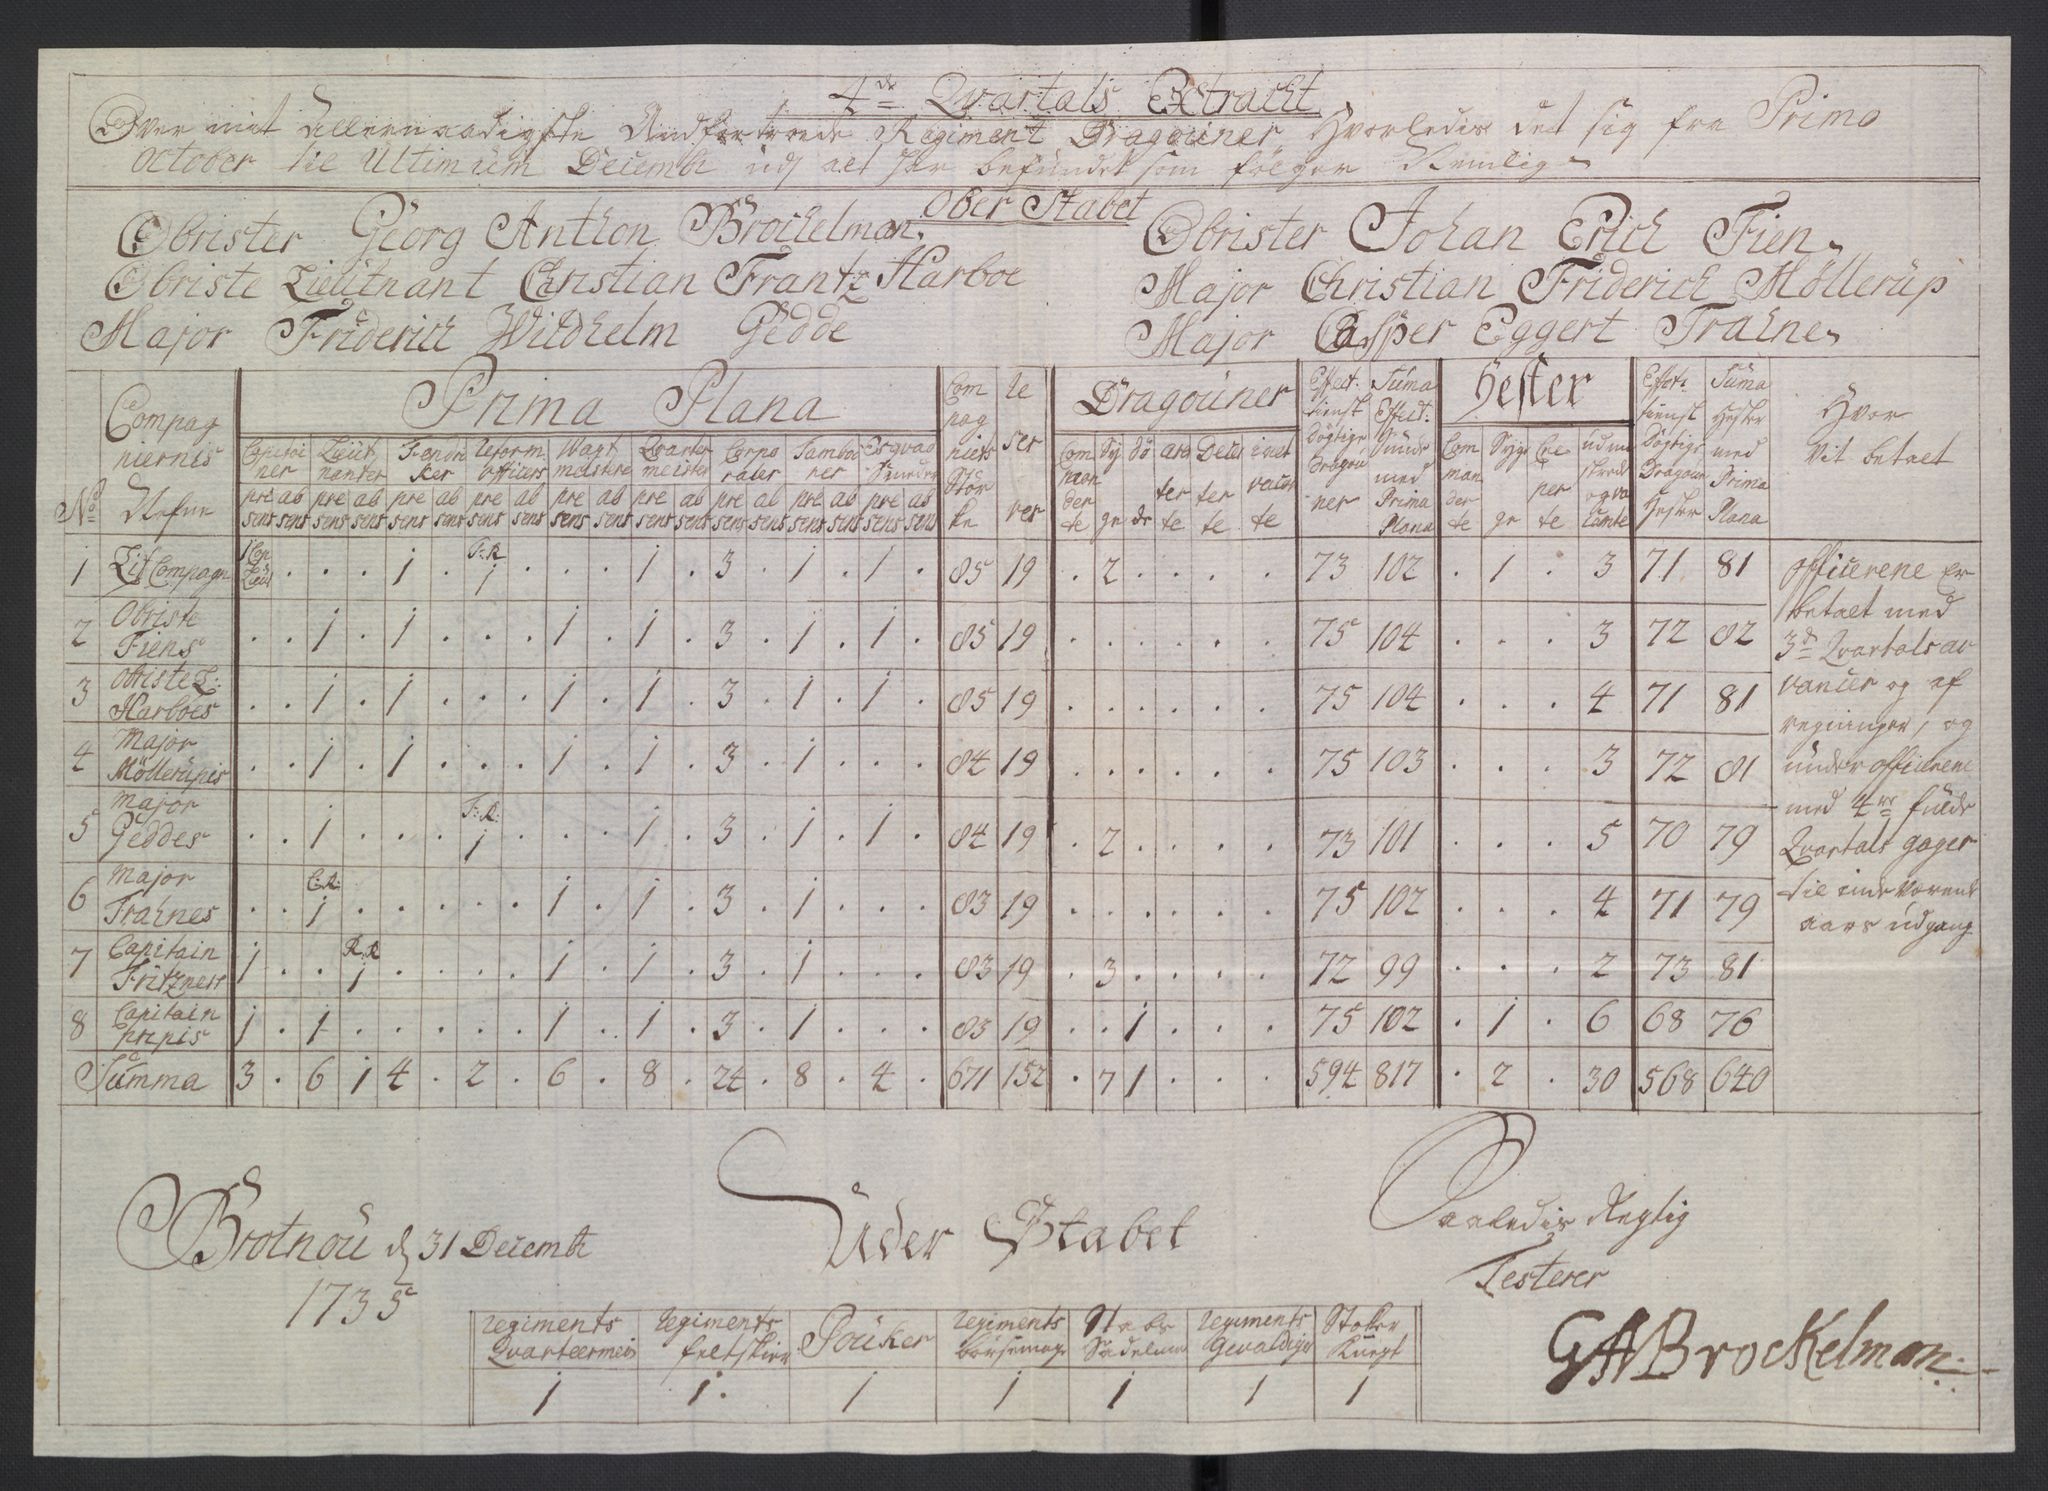 4de Qvartals Extract
Over mit Allernaadigste Anfortroede Regiment Dragouner Hvorledis det sig fra Primo
October til Ultimum Decembr befundet som følger Nemlig
Ober Stabet
Obrister Georg Anthon Brockelman
Obriste Lieutnant Christian Frantz Harboe
Major Friderich Wildhelm Gedde
Obrister Johan Erich Fien
Major Christian Friderich Möllerup
Major Casper Eggert Tralne
No Compagniernis Nafne | Prima Plana | Compagniets Storke | Reserver | Dragouner | Effect: tienst dögtige Dragouner | Suma Effect: Prima Plana | Hester | Effect: tienst dögtige Dragoun Hester | Suma Hester med Prima Plana | Hvor Vit betalt
Capitainer | Lieutnanter | Fendricker | Reform officers | Wagtmestere | Qvarteermeister | Corporaler | Tambouer | Esqvad Smeder
pre sens | ab sens | pre sens | ab sens | pre sens | ab sens | pre sens | ab sens | pre sens | ab sens | pre sens | ab sens | pre sens | ab sens | pre sens | ab sens | pre sens | ab sens
Commanderte | Syge | döde | arterte | Deserterte | Commanderte | Syge | Creperte
1 Lif Compagn | 1 Cap Lieut . . . 1 . F:R 1 . . . 1 . 3 . 1 . 1 . | 85 | 19 | . 2 . . . . | 73 | 102 | . 1 . 3 | 71 | 81
2 Obriste Fiens | . . 1 . 1 . . . 1 . 1 . 3 . 1 . 1 . | 85 | 19 | . . . . . . | 75 | 104 | . . . 3 | 72 | 82
3 Obriste L: Harboes | . . 1 . 1 . . . 1 . 1 . 3 . 1 . 1 . | 85 | 19 | . . . . . . | 75 | 104 | . . . 4 | 71 | 81
4 Major Möllerupis | . . 1 . 1 . . . 1 . 1 . 3 . 1 . . . | 84 | 19 | . . . . . . | 75 | 103 | . . . 3 | 72 | 81
5 Major Geddes | . . 1 . . . F:R: 1 . . . 1 . 3 . 1 . 1 . | 84 | 19 | . 2 . . . . | 73 | 101 | . . . 5 | 70 | 79
6 Major Tralnes | . . C:R: 1 . . . . . 1 . 1 . 3 . 1 . . . | 83 | 19 | . . . . . . | 75 | 102 | . . . 4 | 71 | 79
7 Capitain Fritzners | 1 . . R.R 1 . . . . 1 . 1 . 3 . 1 . . . | 83 | 19 | . 3 . . . . | 72 | 99 | . . . 2 | 73 | 81
8 Capitain | 1 . 1 . . . . . 1 . 1 . 3 . 1 . . . | 83 | 19 | . . 1 . . . | 75 | 102 | . 1 . 6 | 68 | 76
Summa | 3 . 6 1 4 . 2 . 6 . 8 . 24 . 8 . 4 . | 671 | 152 | . 7 1 . . . | 594 | 817 | . 2 . 30 | 568 | 640
Officerene er
betalt med
3de Qvartals av
vancer og af
regninger, og
underofficerene
med 4re fulde
Qvartals gager
til indeværende
aars udgang
Brotnou d 31 Decembr
1735
Under Stabet
Saaledis Rigtig
Testerer
Regiments Qvarteermeis | Regiments feltskier | Pouker | Regiments | Stabs Sadelma | Regiments Gevaldige | Stokerknegt
1 | 1 | 1 | 1 | 1 | 1 | 1
GABrockelman